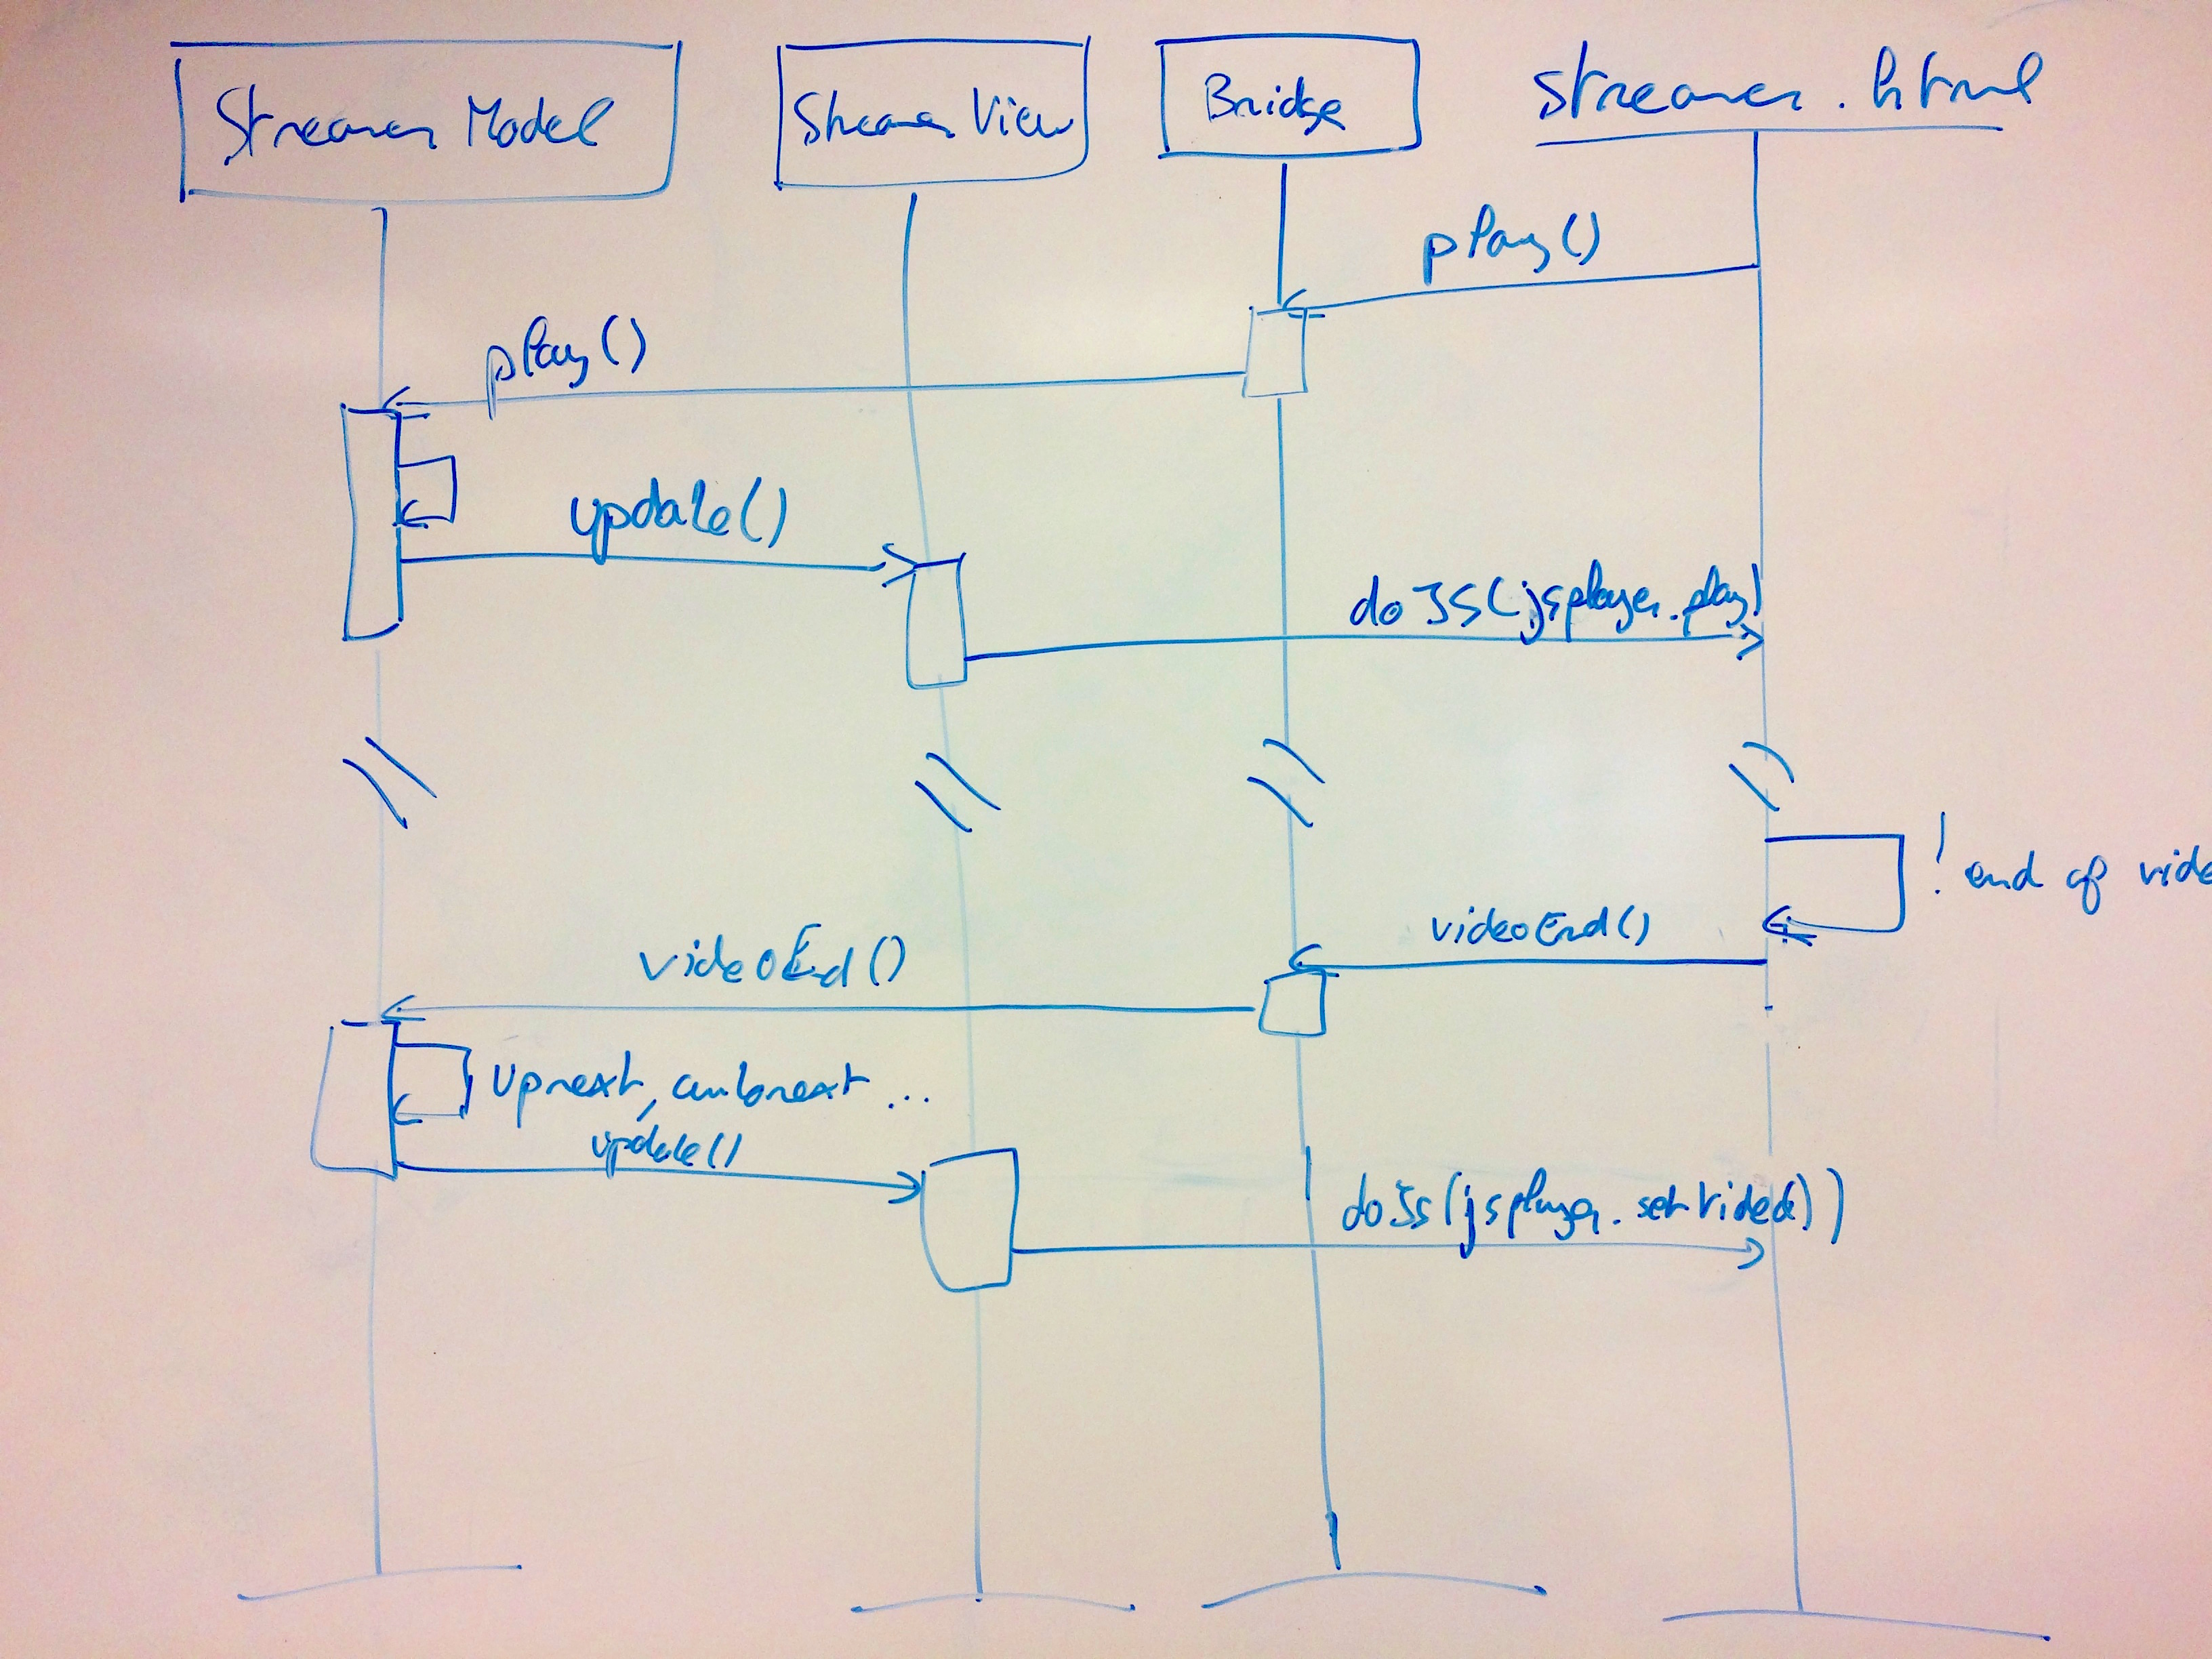 Streamer Model
Streamer View
Bridge
streamer.html
play()
play()
update()
doJS(jsplayer.play)
! end of vide
videoEnd()
videoEnd()
Upnext, autonext ...
update()
doJs(jsplayer.setVideo())